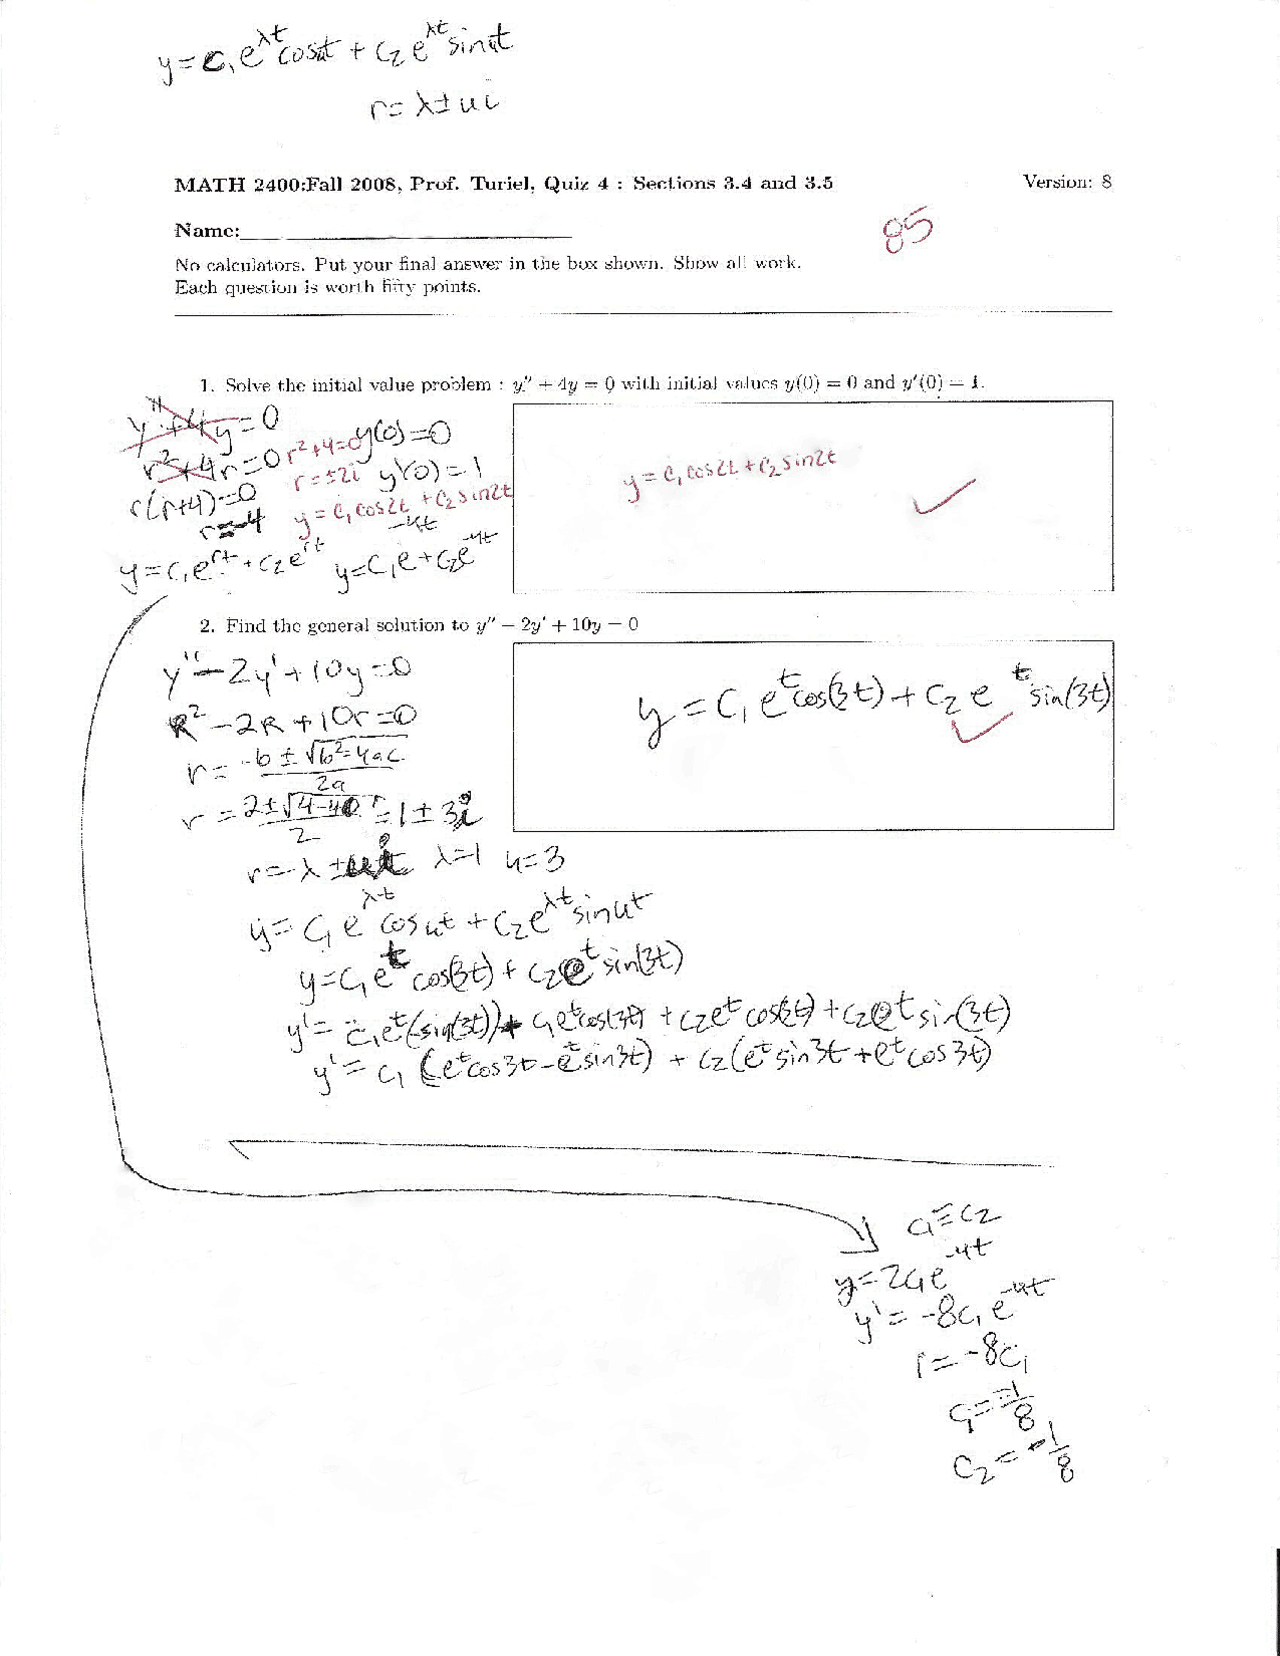 y = c₁e^λt cosut + c₂e^λt sinut
r = λ ± ui
MATH 2400:Fall 2008, Prof. Turiel, Quiz 4 : Sections 3.4 and 3.5 Version: 8
85
Name:
No calculators. Put your final answer in the box shown. Show all work.
Each question is worth fifty points.
1. Solve the initial value problem : y'' + 4y = 0 with initial values y(0) = 0 and y'(0) = 1.
y'' + 4y = 0
r² + 4r = 0 r² + 4 = 0 y(0) = 0
r(r+4) = 0 r = ±2i y'(0) = 1
r = -4 y = c₁cos2t + c₂sin2t
y = c₁e^rt + c₂e^rt y = c₁e^-4t + c₂e^-4t
y = c₁cos2t + c₂sin2t
2. Find the general solution to y'' − 2y' + 10y = 0
y'' − 2y' + 10y = 0
R² − 2R + 10r = 0
r = -b ± √b²-4ac / 2a
r = 2 ± √4-40 / 2 = 1 ± 3i
r = λ ± ui λ=1 u=3
y = C₁e^t cos(3t) + C₂e^t sin(3t)
y = c₁e^λt cosut + c₂e^λt sinut
y = c₁e^t cos(3t) + c₂e^t sin(3t)
y' = c₁e^t(-sin(3t)) + c₁e^t cos(3t) + c₂e^t cos(3t) + c₂e^t sin(3t)
y' = c₁(e^t cos3t − e^t sin3t) + c₂(e^t sin3t + e^t cos3t)
c₁ = c₂
y = 2c₁e^-4t
y' = -8c₁e^-4t
1 = -8c₁
c₁ = -1/8
c₂ = -1/8